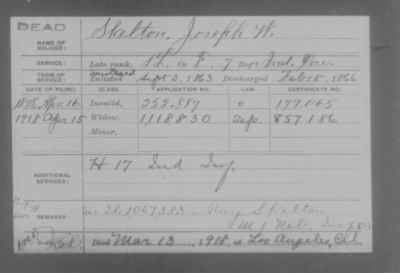 DEAD
NAME OF SOLDIER:
Skelton, Joseph W.
SERVICE:
Late rank, 1 Lt. Co. F, 7 Reg't Ind. Inf.
TERM OF SERVICE:
Enlisted Sept 3, 1863 Discharged Feb 18, 1866
DATE OF FILING. CLASS. APPLICATION NO. LAW. CERTIFICATE NO.
1878, Apr. 16 Invalid, 252,887 177,065
1918 Apr 15 Widow, 1,118,830 857186
Minor,
ADDITIONAL SERVICES:
H 17 Ind Inf.
REMARKS:
1,067,383 - Skelton
M 1 Neb.
Died Mar 13, 1918, at Los Angeles, Cal.